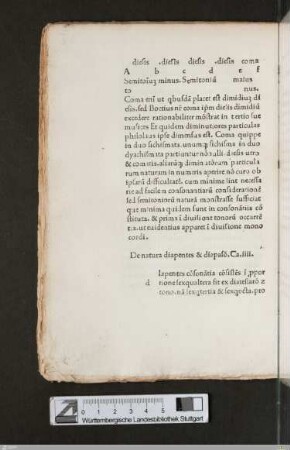 diesis .diesis diesis .diesis coma
A b c d e f
Semitoniū minus. Semitoniū maius
to nus.
Coma em̄ ut qbusdā placet est dimidiuʒ di
esis. sed Boetius
excedere rationabiliter mōstrat in tertio sue
musices Et quidem diminutiores particulas
philolaus ipse dimensus est. Coma quippe
in duo schismata. unumqʒ schisma in duo
dyachismata partiuntur
& commis. aliarūqʒ diminutiorum particula
rum naturam in numeris aptare nō curo ob
ipsarū difficultatē. cum minime sint necessa
rie ad facilem consonantiarū considerationē
sed semitoniorū naturā monstrasse sufficiat
que minima quidam sunt in consonātiis cō
stituta. & prima ī diuisione tonorū occurrē
tia. ut euidentius apparet ī diuisione mono
cordi.
De natura diapentes & diapasō. Ca. iiii.
d iapentes cōsonātia cōsistēs ī ppor
tione sexqualtera fit ex diatessarō &
tono. nā sexqtertia & sexqocta. pro
0 1 2 3 4 5
Württembergische Landesbibliothek Stuttgart